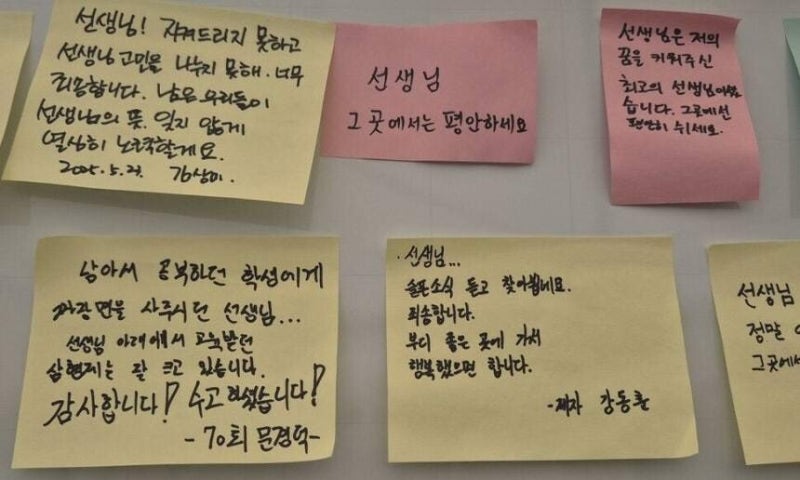 선생님! 지켜드리지 못하고
선생님 고민을 나누지 못해 너무
죄송합니다. 남은 우리들이
선생님의 뜻 잊지 않게
열심히 노력할게요.
2025.5.23. 김상이.
선생님
그 곳에서는 평안하세요
선생님은 저의
꿈을 키워주신
최고의 선생님이셨
습니다. 그곳에선
편안히 쉬세요.
남아서 공부하던 학생에게
짜장면을 사주시던 선생님...
선생님 아래에서 교육받던
삼형제는 잘 크고 있습니다.
감사합니다! 수고하셨습니다!
-70회 문경덕-
·선생님...
슬픈소식 듣고 찾아뵙네요.
죄송합니다.
부디 좋은 곳에 가서
행복했으면 합니다.
-제자 강동훈
선생님
정말
그곳에서